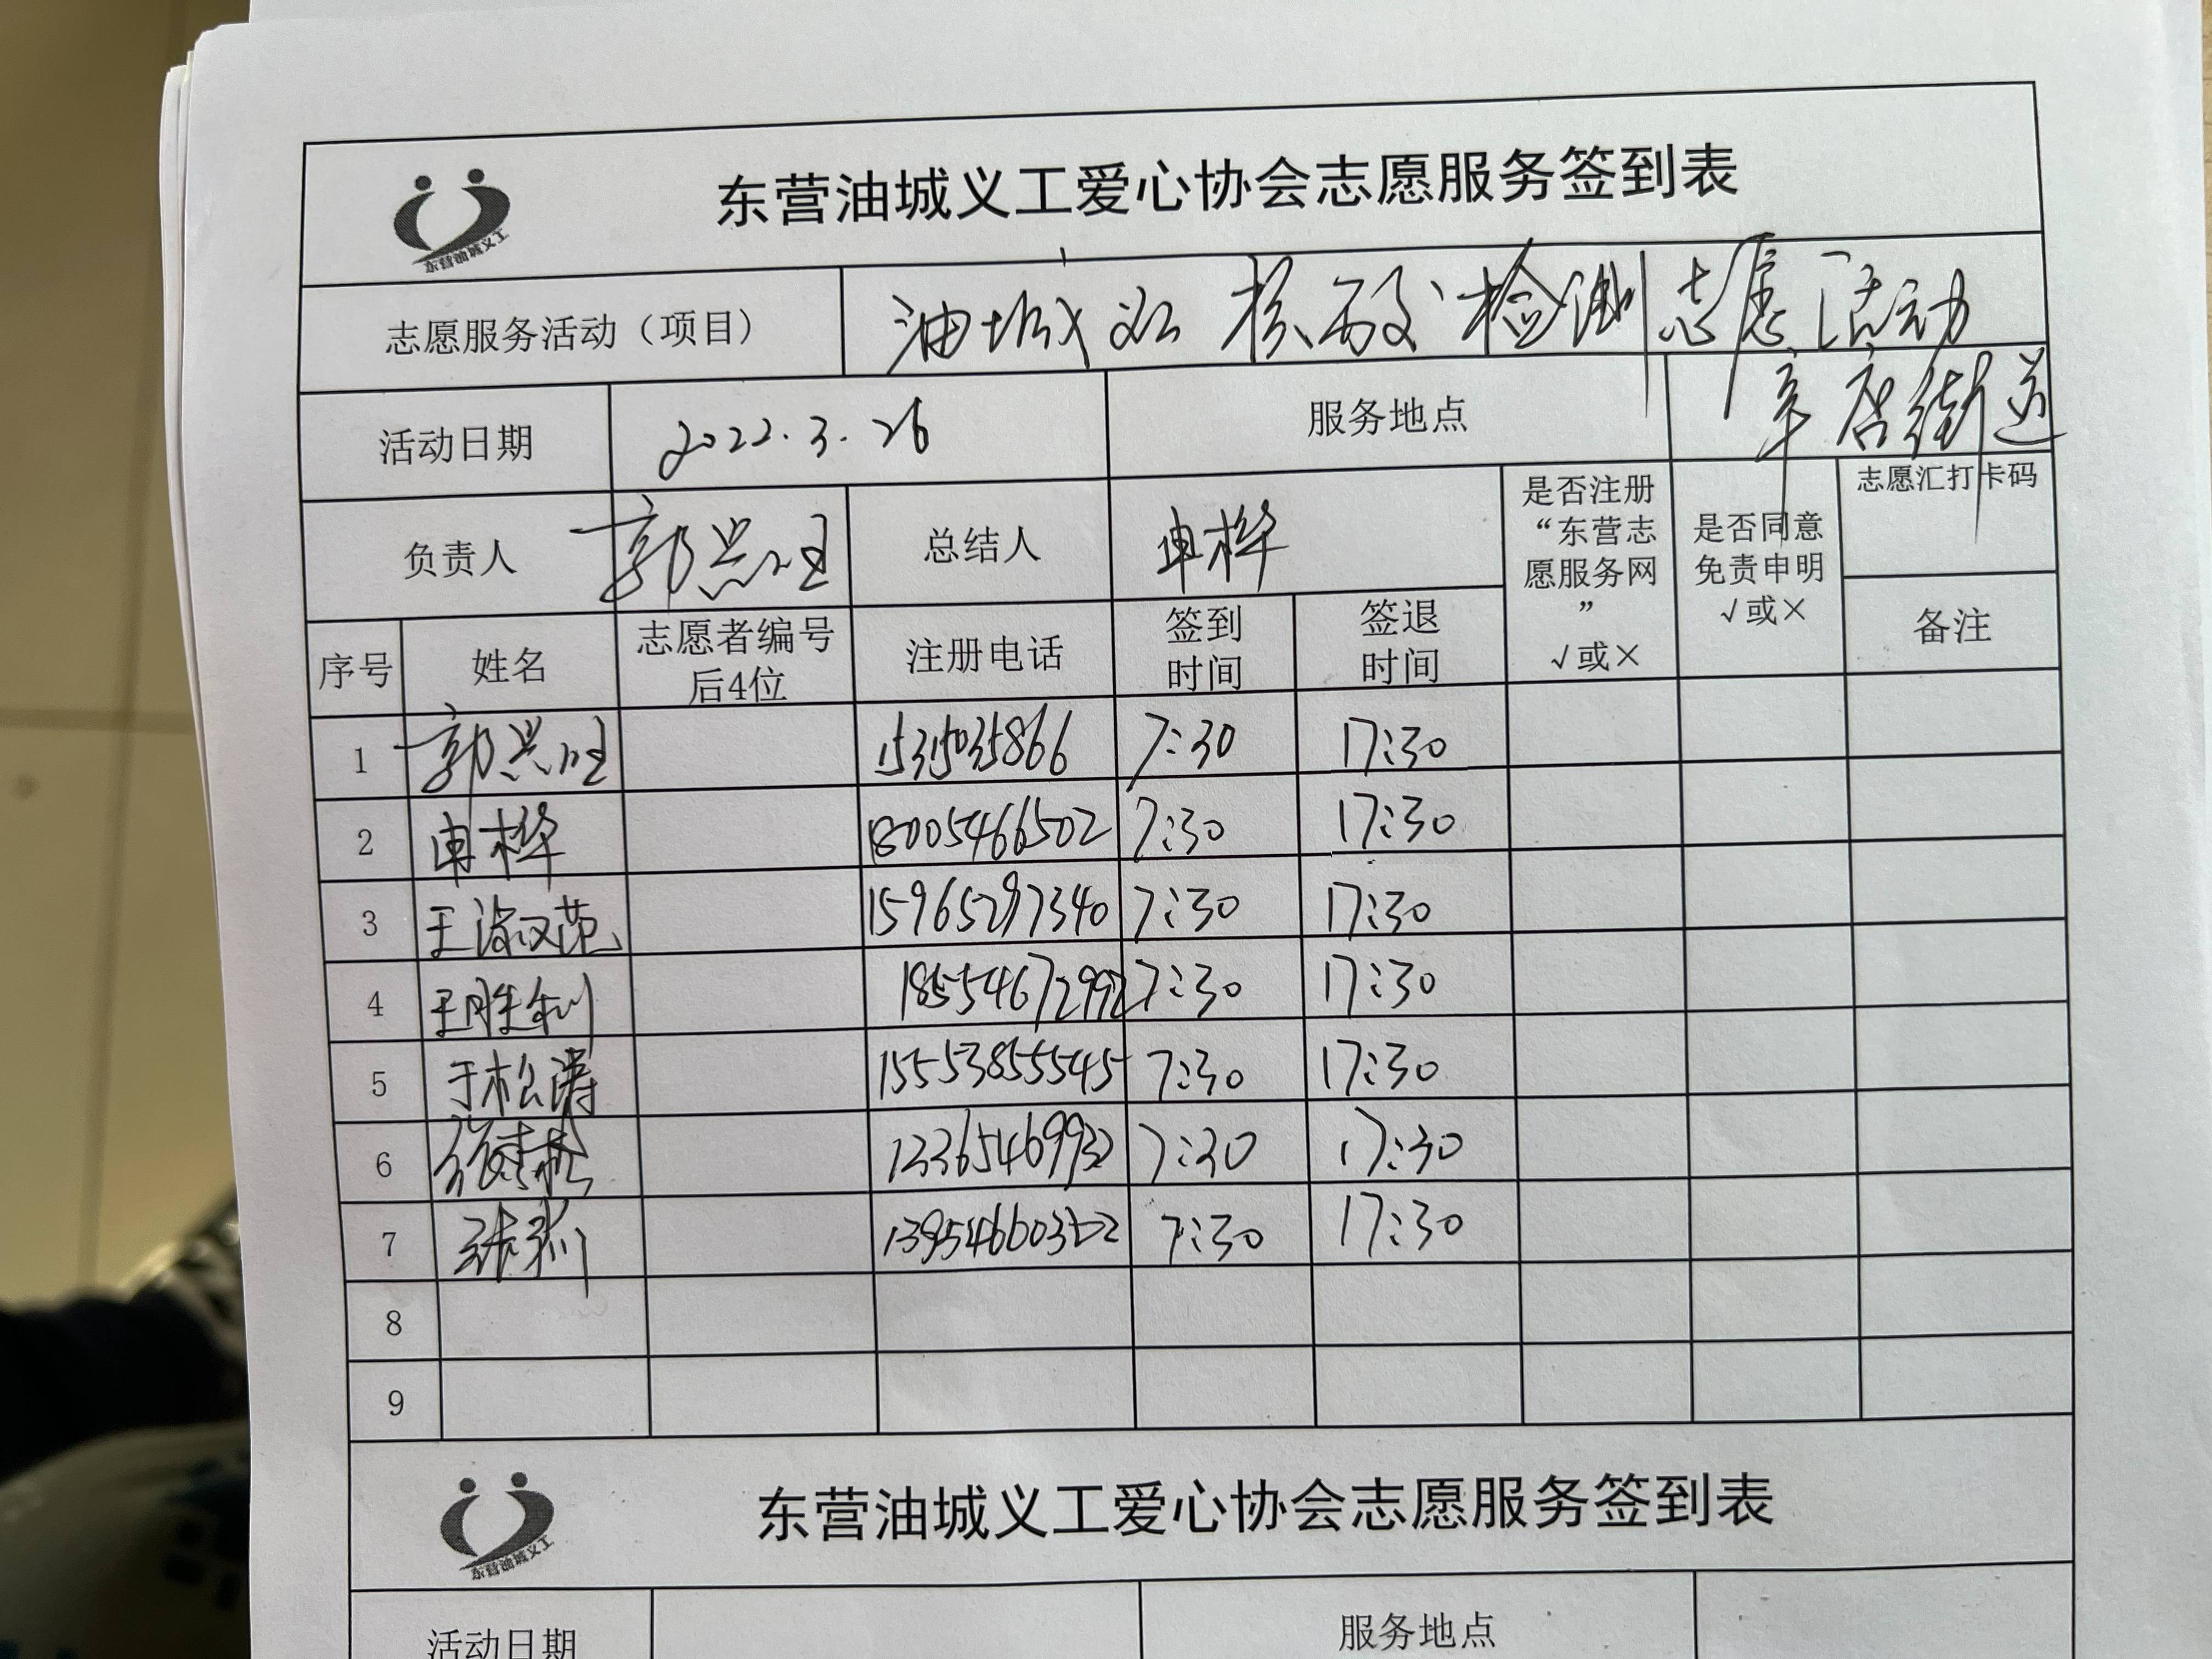 东营油城义工爱心协会志愿服务签到表
东营油城义工
志愿服务活动（项目） 油城义工核酸检测志愿活动
活动日期 2022.3.26 服务地点 辛店街道
负责人 郭兴旺 总结人 申桦 是否注册“东营志愿服务网” √或× 是否同意免责申明 √或× 志愿汇打卡码
序号 姓名 志愿者编号后4位 注册电话 签到时间 签退时间 备注
1 郭兴旺 15315035866 7:30 17:30
2 申桦 18005466502 7:30 17:30
3 王淑范 15965297340 7:30 17:30
4 王胜利 18554672992 7:30 17:30
5 于松涛 15553855545 7:30 17:30
6 13365469932 7:30 17:30
7 13954660322 7:30 17:30
8
9
东营油城义工爱心协会志愿服务签到表
东营油城义工
活动日期 服务地点